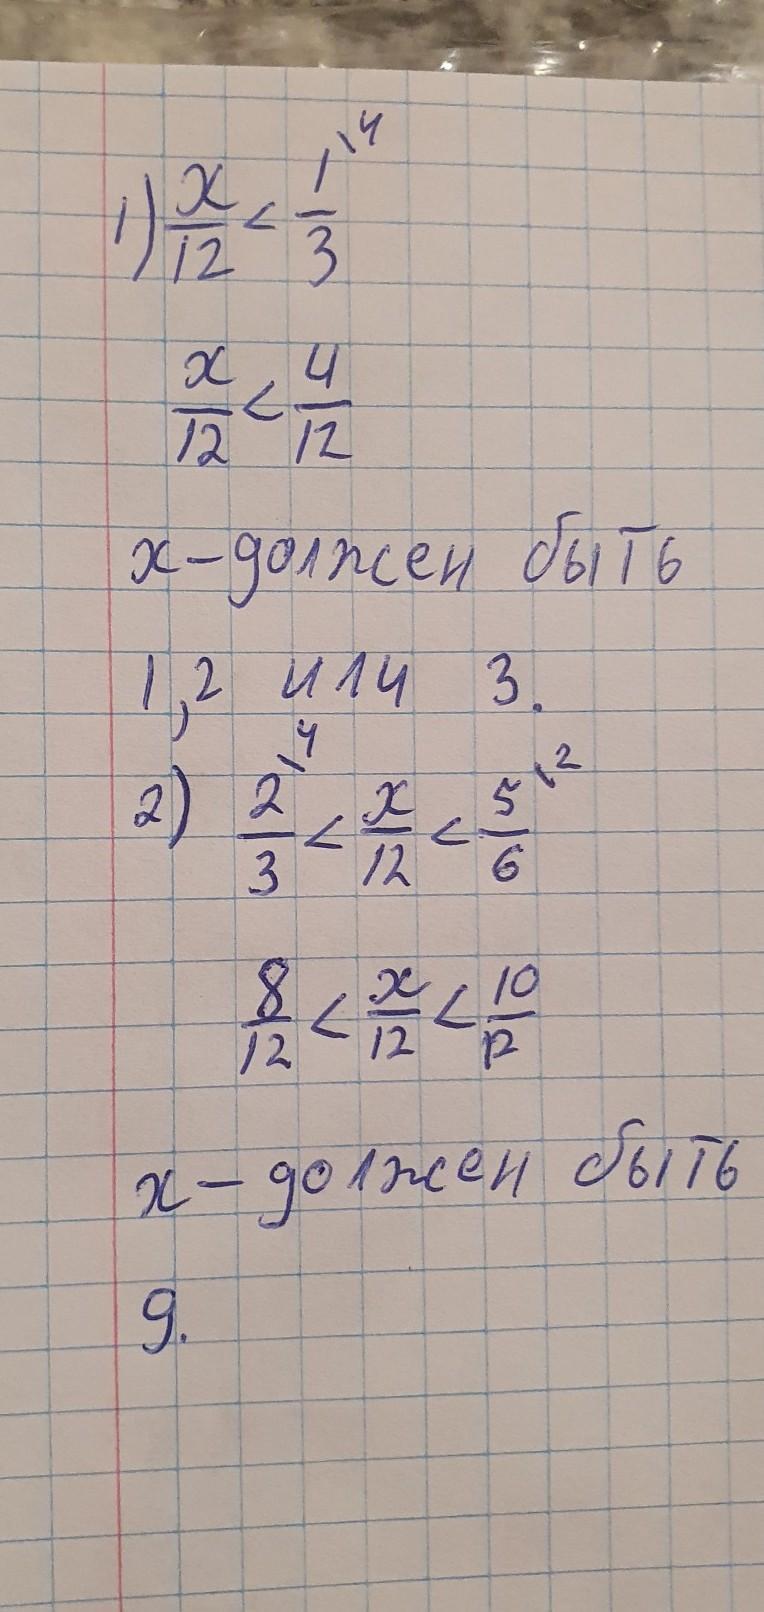 1) x/12 < 1/3 \4
x/12 < 4/12
x – должен быть
1,2 или 3.
2) 2/3 \4 < x/12 < 5/6 \2
8/12 < x/12 < 10/12
x – должен быть
9.